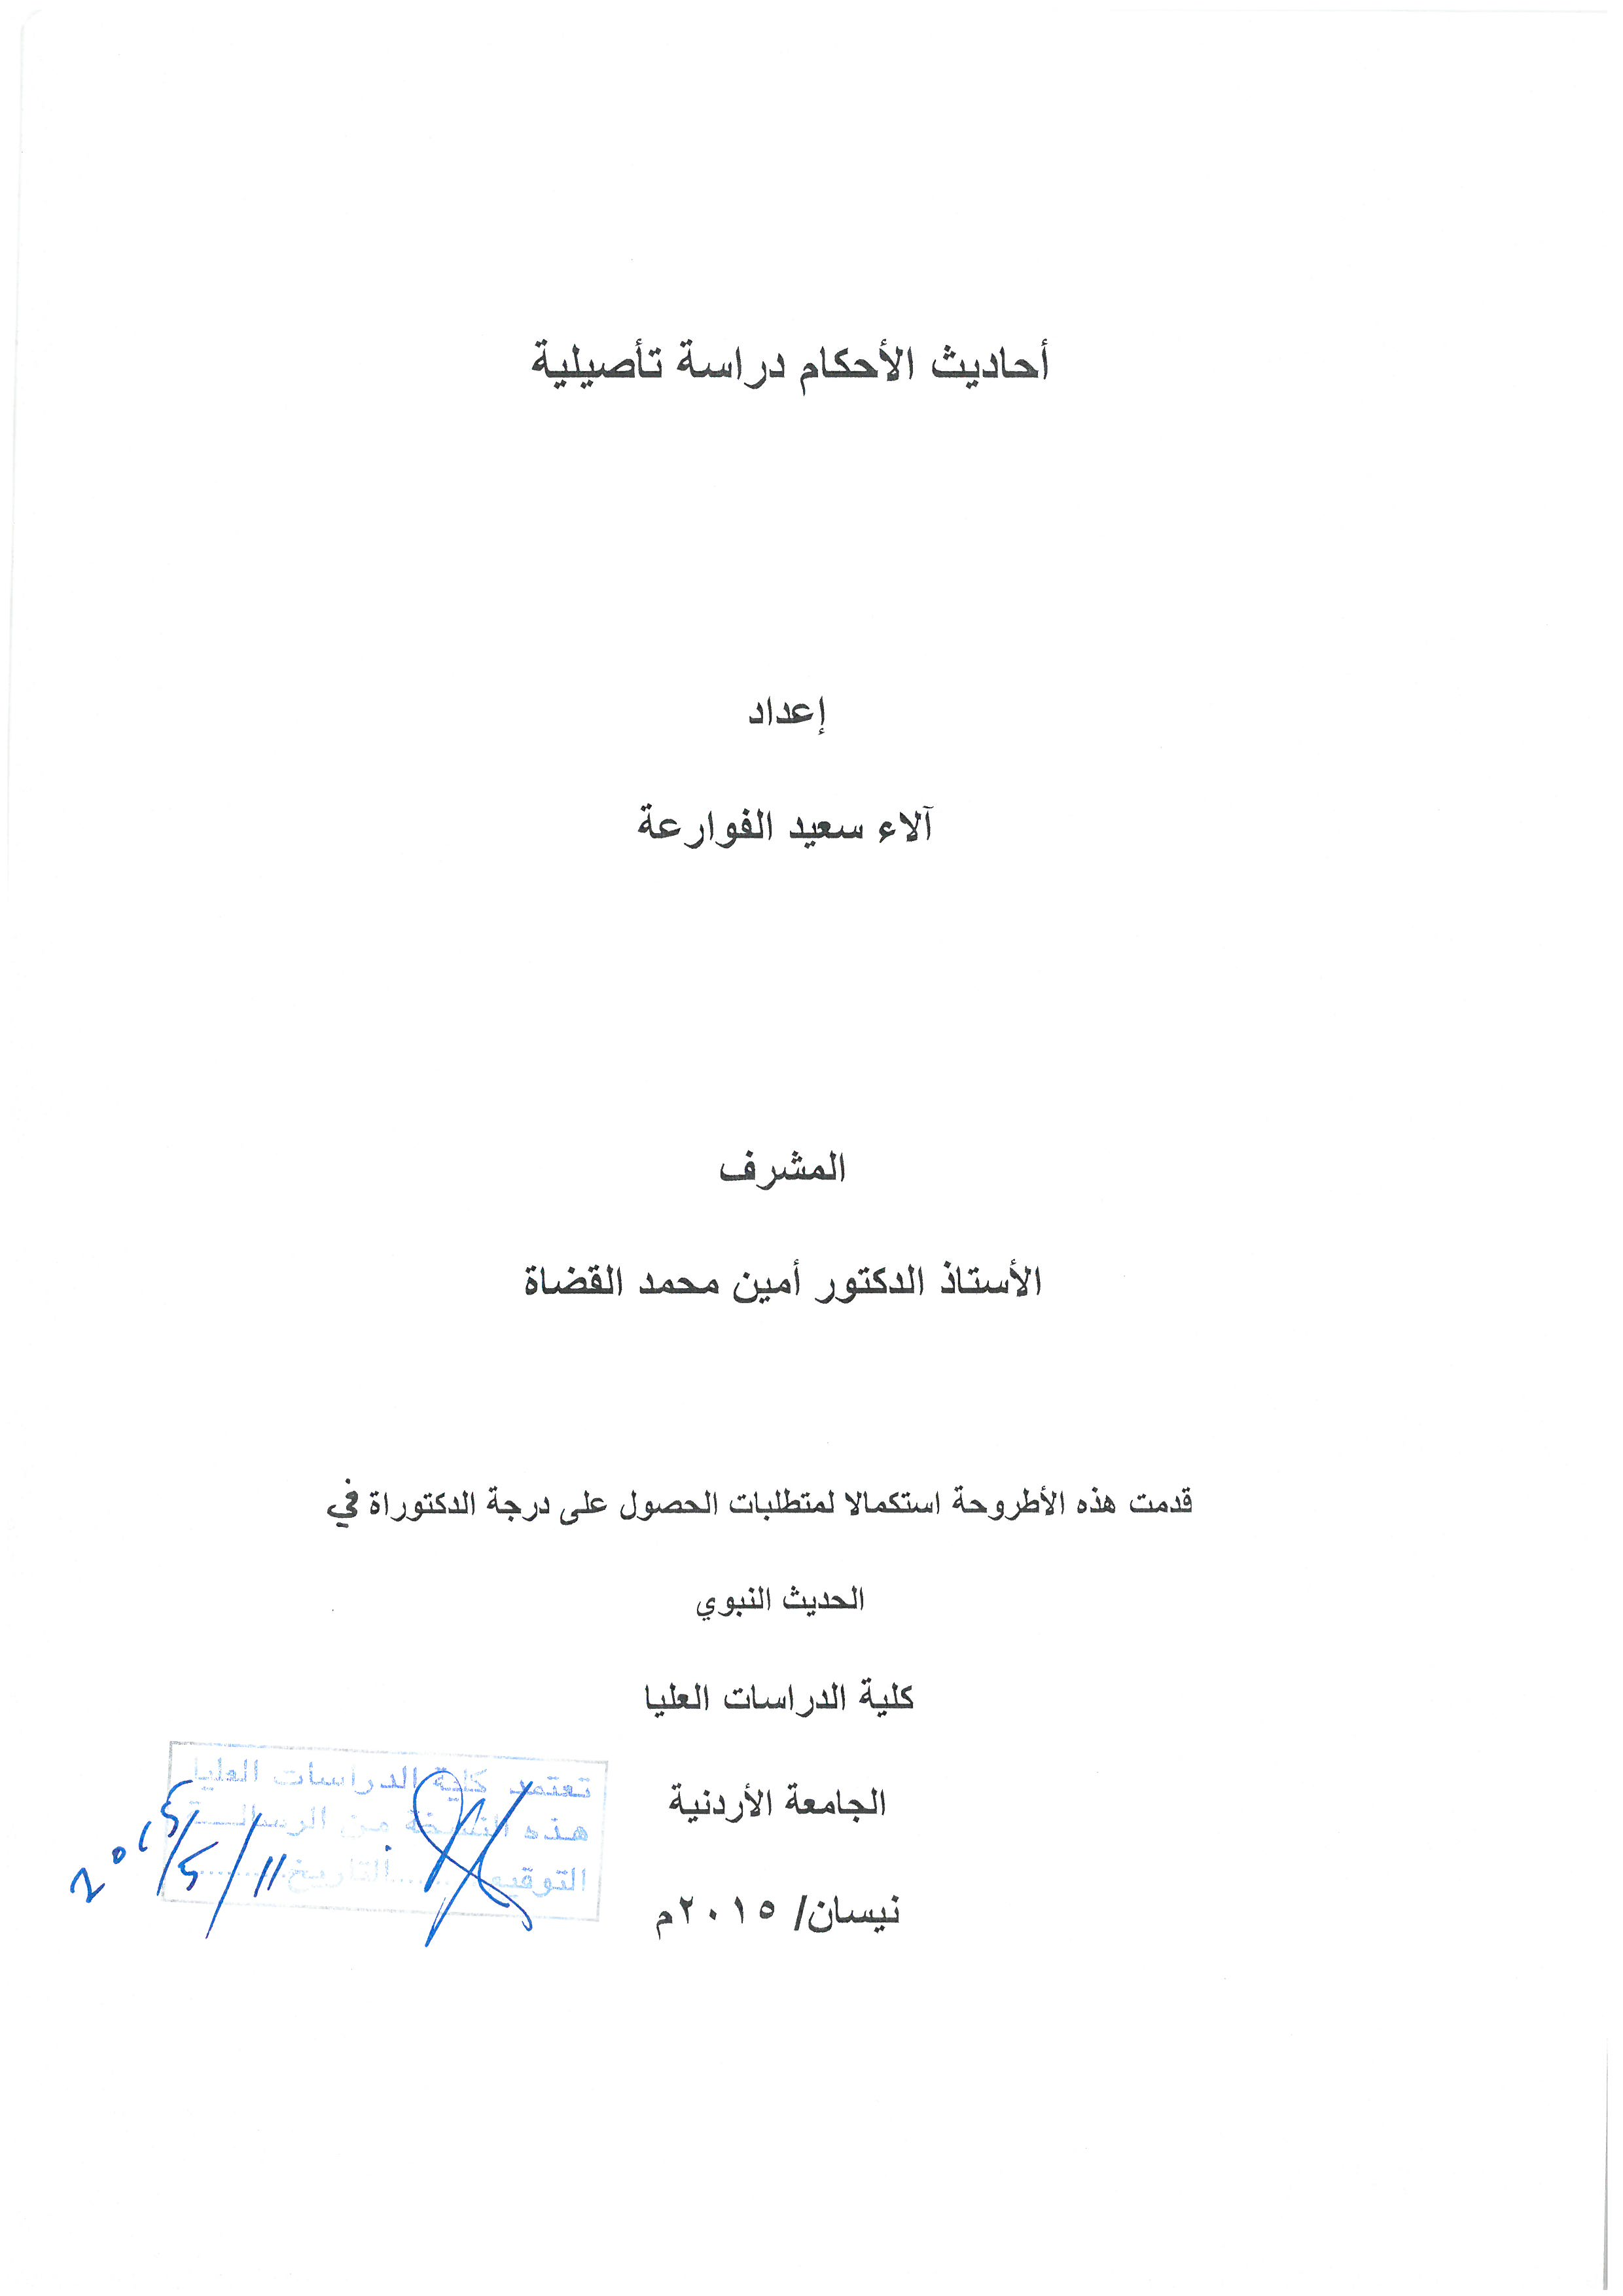 أحاديث الأحكام دراسة تأصيلية
إعداد
آلاء سعيد الفوارعة
المشرف
الأستاذ الدكتور أمين محمد القضاة
قدمت هذه الأطروحة استكمالا لمتطلبات الحصول على درجة الدكتوراة في
الحديث النبوي
كلية الدراسات العليا
الجامعة الأردنية
نيسان/ ٢٠١٥م
تعتمد كلية الدراسات العليا
هذه النسخة من الرسالــة
التوقيع.......التاريخ.........